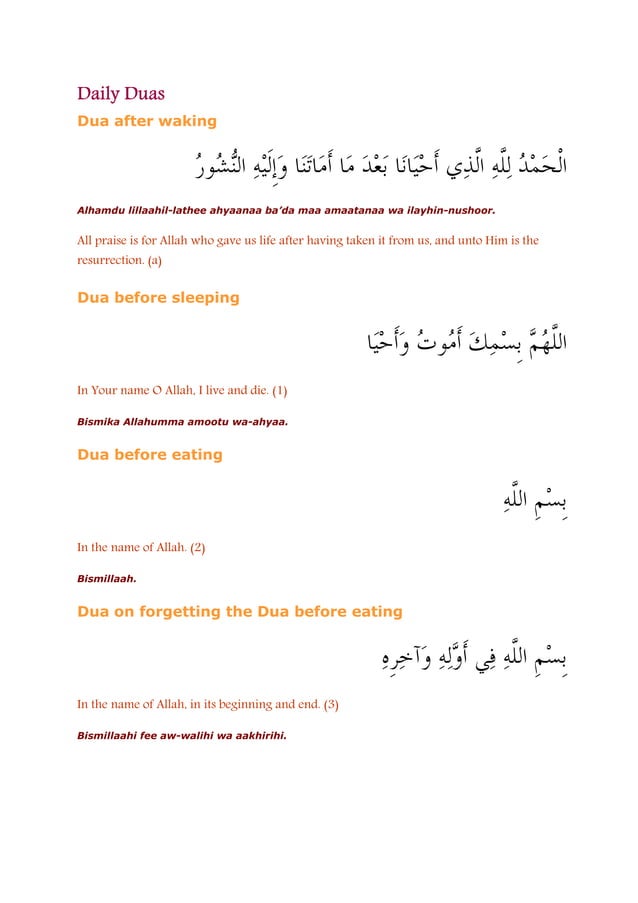 Daily Duas
Dua after waking
الْحَمْدُ لِلَّهِ الَّذِي أَحْيَانَا بَعْدَ مَا أَمَاتَنَا وَإِلَيْهِ النُّشُورُ
Alhamdu lillaahil-lathee ahyaanaa ba’da maa amaatanaa wa ilayhin-nushoor.
All praise is for Allah who gave us life after having taken it from us, and unto Him is the
resurrection. (a)
Dua before sleeping
اللَّهُمَّ بِسْمِكَ أَمُوتُ وَأَحْيَا
In Your name O Allah, I live and die. (1)
Bismika Allahumma amootu wa-ahyaa.
Dua before eating
بِسْمِ اللَّهِ
In the name of Allah. (2)
Bismillaah.
Dua on forgetting the Dua before eating
بِسْمِ اللَّهِ فِي أَوَّلِهِ وَآخِرِهِ
In the name of Allah, in its beginning and end. (3)
Bismillaahi fee aw-walihi wa aakhirihi.